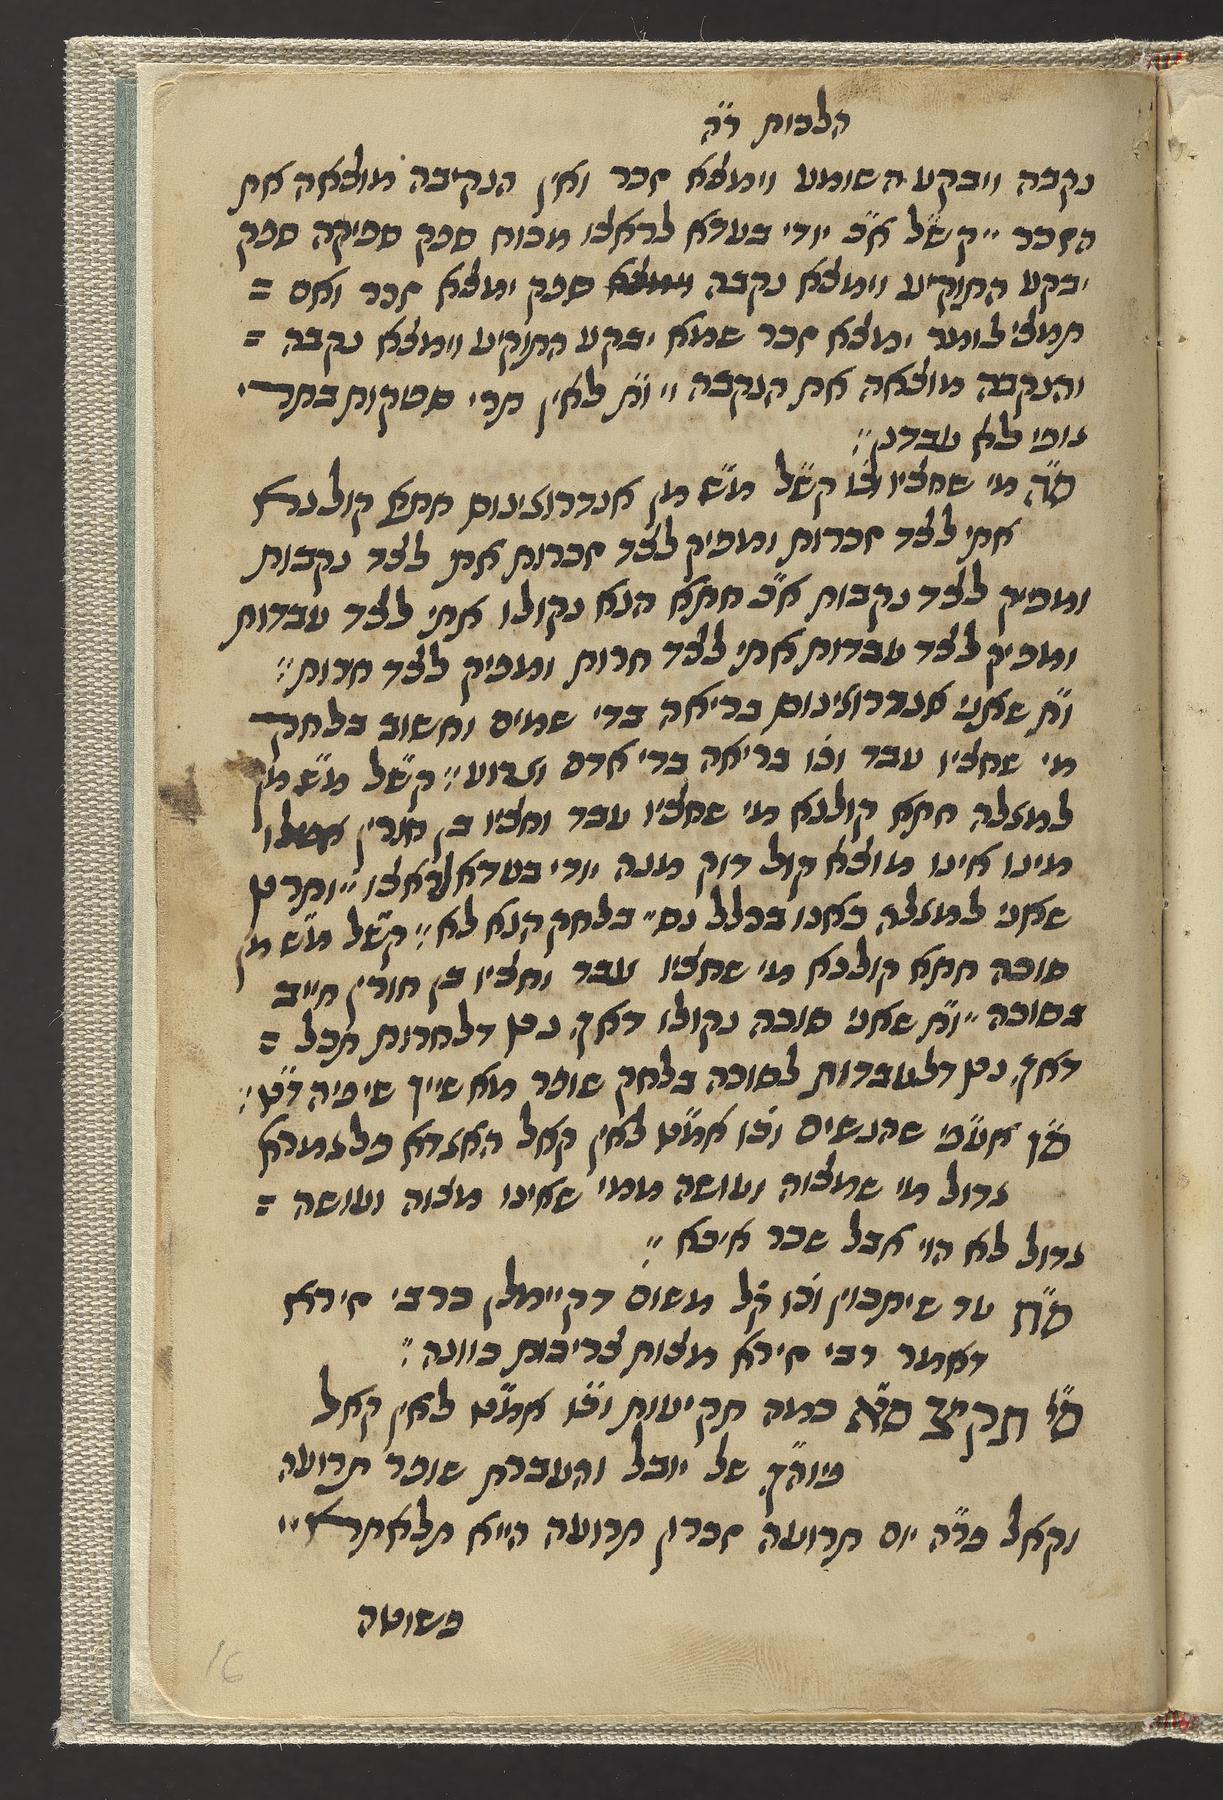 הלכות ר״ה
נקבה ויבקע השומע וימצא זכר ואין הנקיבה מוצאה את
הזכר ״ קש״ל א״כ יודי בעדא לראצו מכוח ספק ספיקה ספק
יבקע התוקיע וימצא נקבה ספק ימצא זכר ואם =
תמצי לומר ימצא זכר שמא יבקע התוקיע וימצא נקבה =
והנקבה מוצאה את הנקבה ״ ות׳ לאין תרי סטקות בתרי
גופי לא עבדנן ״:
ס״ה מי שחציו וכו׳ קש״ל מ״ש מן אנדרוגינוס חתא קולנא
אתי לצד זכרות ומפיק לצד זכרות אתי לצד נקבות
ומפיק לצד נקבות א״כ חתא הנא נקולו אתי לצד עבדות
ומפיק לצד עבדות אתי לצד חרות ומפיק לצד חרות ״:
ות׳ שאני אנדרוגינוס בריאה בדי שמים וחשוב בלחק
מי שחציו עבד וכו׳ בריאה בדי אדם וגרוע ״: קש״ל מ״ש מן
למגלה חתא קולנא מי שחציו עבד וחציו בן חורין אפילו
מינו אינו מוצא קול דוק מנה יודי בעדא לראצו ״ ותרץ
שאני למגלה כאנו בכלל נס ״ בלחק הנא לא ״: קש״ל מ״ש מן
סוכה חתא קולנא מי שחציו עבד וחציו בן חורין חייב
בסוכה ״ ות׳ שאני סוכה נקולו דאך נץ דלחרות תכל =
דאך נץ דלעבדות לסוכה בלחק שופר מא שייך שיפיה דץ ״:
ס״ו אע״פ שהנשים וכו׳ אמ״ץ לאין קאל האגדא פלגמרא
גדול מי שמצוה ועושה ממי שאינו מצוה ועושה =
גדול לא הוי אבל שכר איכא ״:
ס״ח עד שיתכוין וכו׳ ק״ל משום דקיימלן כרבי זירא
דאמר רבי זירא מצות צריכות כוונה ״:
ס״י תק״צ ס״א כמה תקיעות וכו׳ אמ״ץ לאין קאל
פיוה״ך של יובל והעברת שופר תרועה
וקאל פר״ה יום תרועה זכרון תרועה הייא תלאתא ״
פשוטה
16